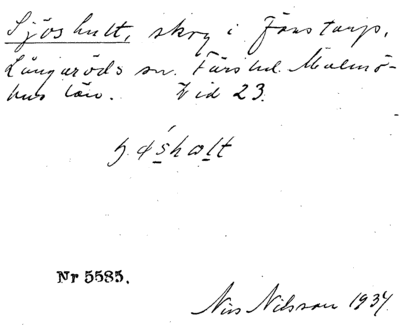 Sjöshult, skog i Fönstarp,
Långaröds sn. Färs hd. Malmö-
hus län. Vid 23.
Nr 5585.
Nils Nilsson 1934.